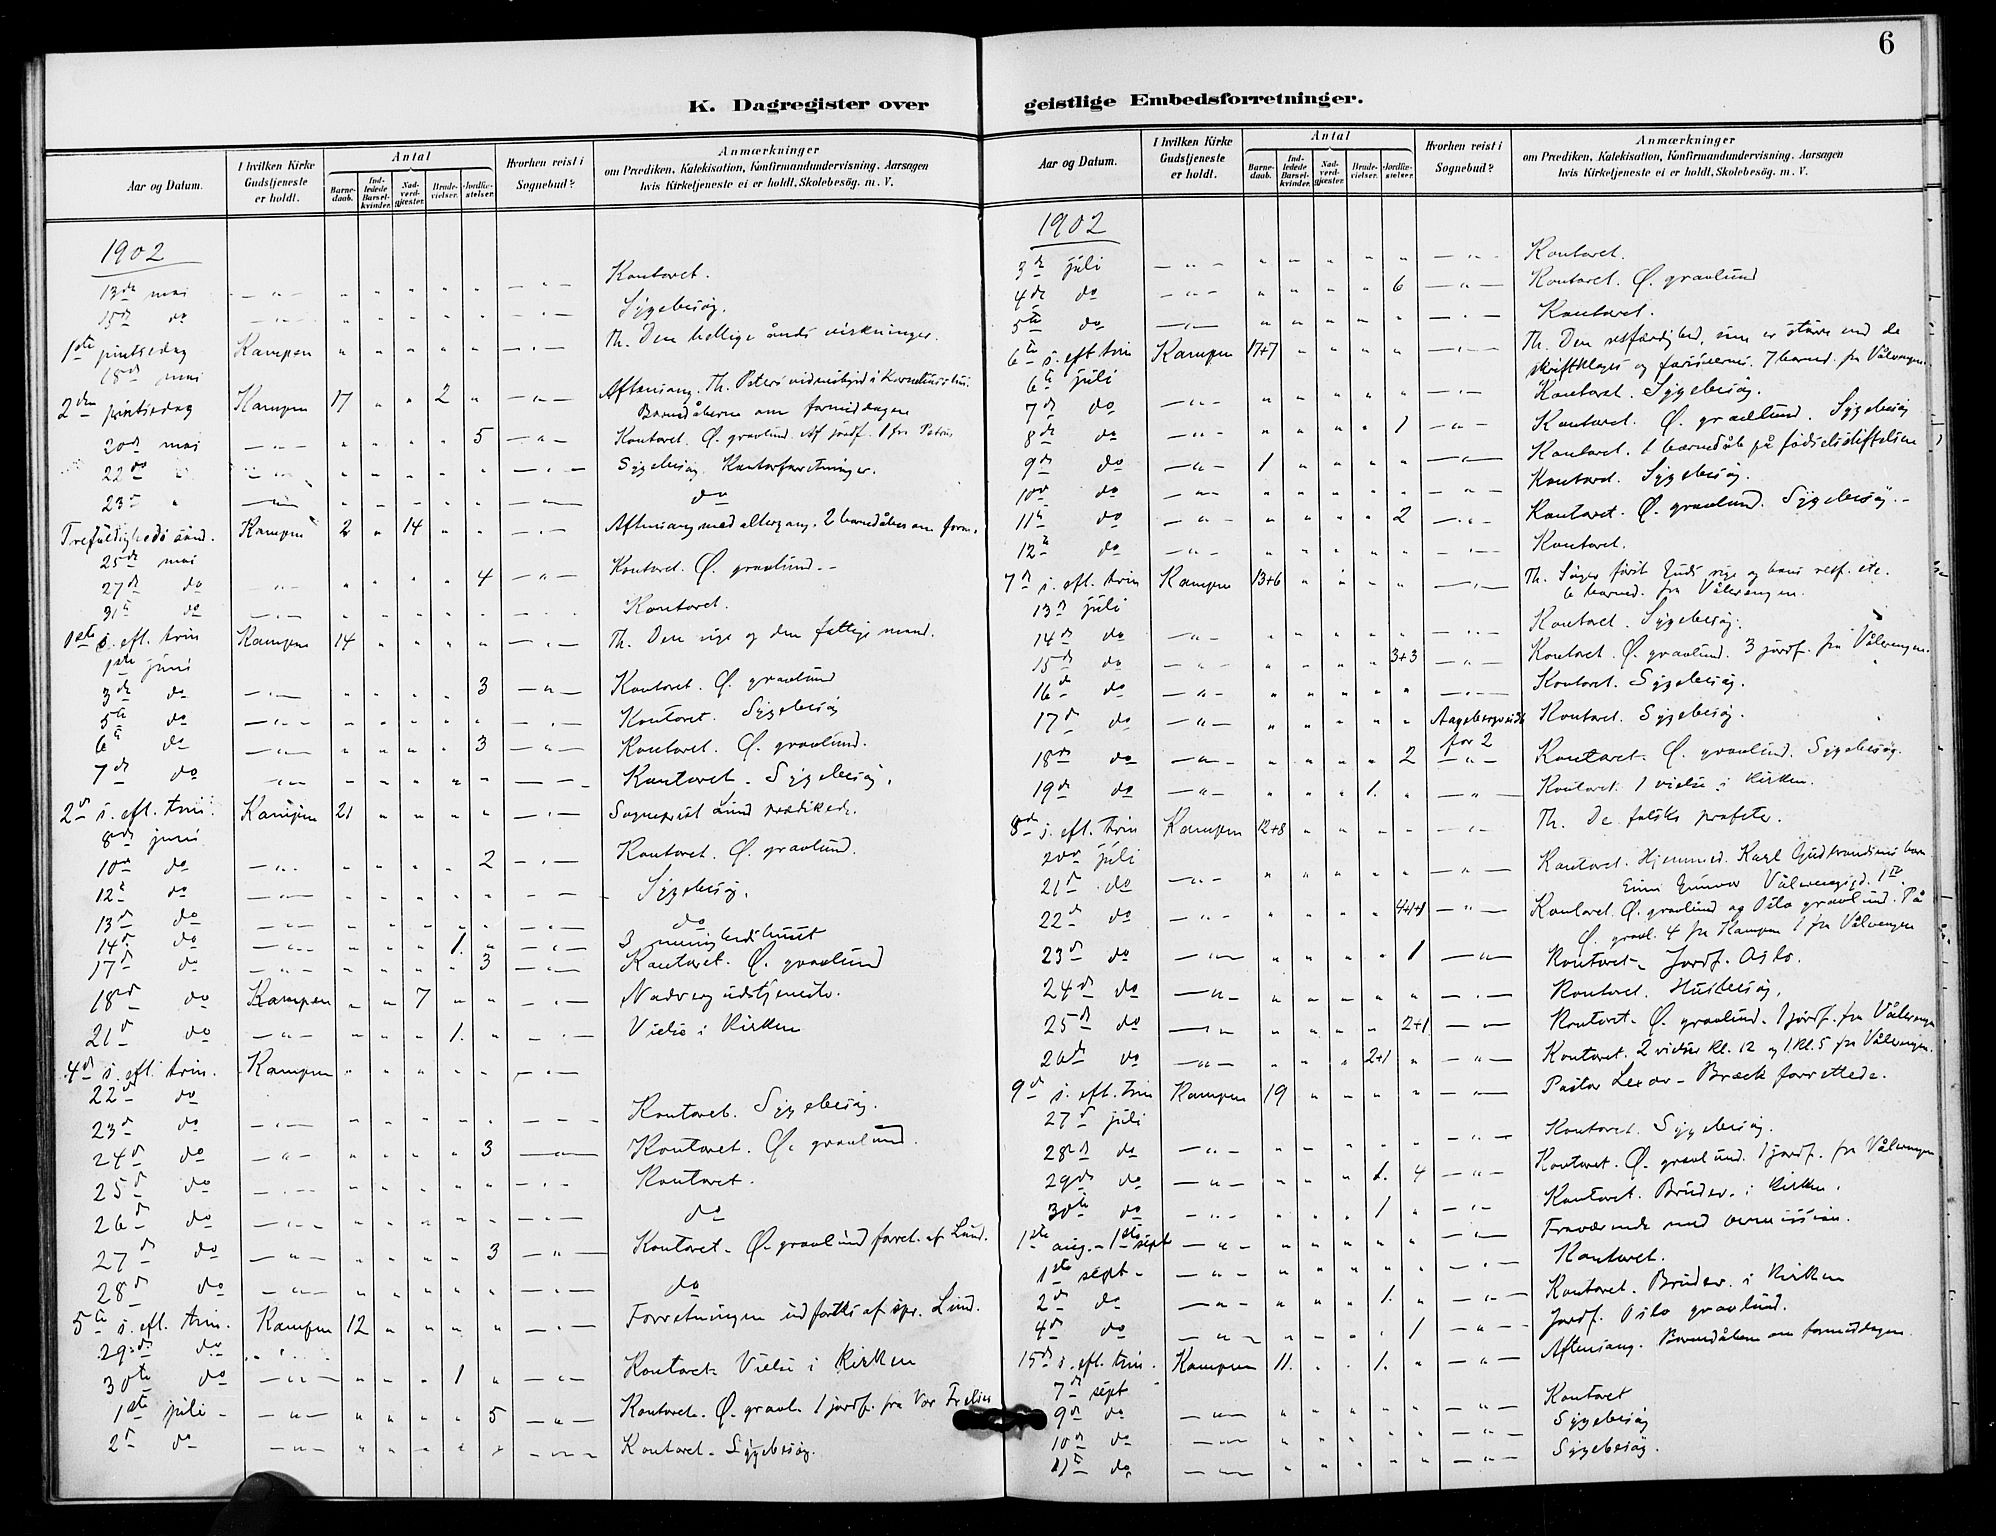 6
K. Dagregister over geistlige Embedsforretninger.
Aar og Datum. | I hvilken Kirke Gudstjeneste er holdt. | Antal | Barnedaab. | Indledede Barselkvinder. | Nadverdgjæster. | Brudevielser. | Jordfæstelser. | Hvorhen reist i Sognebud? | Anmærkninger om Prædiken, Katekisation, Konfirmandundervisning, Aarsagen hvis Kirketjeneste ei er holdt, Skolebesög. m. V.
1902
13de mai — " — " " " " " — " — Kontoret.
15de do — " — " " " " " — " — Sygebesøg.
1ste pintsedag Kampen " " " " " — " — Th. Den hellige ånds virkninger.
18de mai
2den pintsedag Kampen 17 " " 2 " — " — Aftensang. Th. Peters vidnesbyrd i Kornelius hus.
Barnedåberne om formiddagen
20de mai — " — " " " " 5 — " — Kontoret. Ø. gravlund. Af jordf. 1 fra Petrus
22de " — " — " " " " " — " — Sygebesøg. Kontorforretninger.
23de " — " — " " " " " — " — do
Trefoldigheds sønd. Kampen 2 " 14 " " — " — Aftensang med altergang. 2 barnedåber om form.
25de mai
27de do — " — " " " " 4 — " — Kontoret. Ø. gravlund.
31te do — " — " " " " " — " — Kontoret.
1ste s. eft. trin Kampen 14 " " " " — " — Th. Den rige og den fattige mand.
1ste juni
3de do — " — " " " " 3 — " — Kontoret. Ø. gravlund
5te do — " — " " " " " — " — Kontoret. Sygebesøg
6te do — " — " " " " 3 — " — Kontoret. Ø. gravlund.
7de do — " — " " " " " — " — Kontoret. Sygebesøg.
2den s. eft. trin. Kampen 21 " " " " — " — Sogneprest Lund prædikede.
8de juni
10de do — " — " " " " 2 — " — Kontoret. Ø. gravlund.
12te do — " — " " " " " — " — Sygebesøg.
13de do — " — " " " " " — " — do
14de do — " — " " " 1. " — " — I menighedshuset
17de do — " — " " " " 3 — " — Kontoret. Ø. gravlund
18de do Kampen " " 7 " " — " — Nadvergudstjeneste.
21de do — " — " " " 1. " — " — Vielse i kirken
4de s. eft. trin. Kampen " " " " " — " —
22de do
23de do — " — " " " " " — " — Kontoret. Sygebesøg.
24de do — " — " " " " 3 — " — Kontoret. Ø. gravlund.
25de do — " — " " " " " — " — Kontoret.
26de do — " — " " " " " — " — do
27de do — " — " " " " 3 — " — Kontoret. Ø. gravlund forret. af Lund.
28de do — " — " " " " " — " — do
5te s. eft. trin. Kampen 12 " " " " — " — Forretningen udførtes af spr. Lund.
29de do
30te do — " — " " " 1 " — " — Kontoret. Vielse i kirken
1ste juli — " — " " " " 5 — " — Kontoret. Ø. gravl. 1 jordf. fra Vor Frelser
2de do — " — " " " " " — " — Kontoret. Sygebesøg.
Aar og Datum. | I hvilken Kirke Gudstjeneste er holdt. | Antal | Barnedaab. | Indledede Barselkvinder. | Nadverdgjæster. | Brudevielser. | Jordfæstelser. | Hvorhen reist i Sognebud? | Anmærkninger om Prædiken, Katekisation, Konfirmandundervisning, Aarsagen hvis Kirketjeneste ei er holdt, Skolebesög. m. V.
1902
3de juli — " — " " " " " — " — Kontoret.
4de do — " — " " " " 6 — " — Kontoret. Ø. gravlund
5te do — " — " " " " " — " — Kontoret.
6te s. eft. trin Kampen 17+7 " " " " — " — Th. Den retfærdighed, som er større end de
6te juli skriftkloges og farisæernes. 7 barned. fra Vålerengen
7de do — " — " " " " " — " — Kontoret. Sygebesøg.
8de do — " — " " " " 1 — " — Kontoret. Ø. gravlund. Sygebesøg
9de do — " — 1 " " " " — " — Kontoret. 1 barnedåb på fødselsstiftelsen
10de do — " — " " " " " — " — Kontoret. Sygebesøg.
11te do — " — " " " " 2 — " — Kontoret. Ø. gravlund. Sygebesøg.
12te do — " — " " " " " — " — Kontoret.
7de s. eft. trin Kampen 13+6 " " " " — " — Th. Søger først Guds rige og hans retf. etc.
13de juli 6 barned. fra Vålerengen.
14de do — " — " " " " " — " — Kontoret. Sygebesøg.
15de do — " — " " " " 3+3 — " — Kontoret. Ø. gravlund. 3 jordf. fra Vålerengen.
16de do — " — " " " " " — " — Kontoret. Sygebesøg.
17de do — " — " " " " " Aagebergveien for 2 Kontoret. Sygebesøg.
18de do — " — " " " " 2 — " — Kontoret. Ø. gravlund. Sygebesøg.
19de do — " — " " " 1. " — " — Kontoret. 1 vielse i kirken.
8de s. eft. trin Kampen 12+8 " " " " — " — Th. De falske profeter.
20de juli
21de do — " — " " " " " — " — Kontoret. Hjemmed. Karl Gudbrandsens barn
Gunvor Vålerenggd. 1
22de do — " — " " " " 4+1+1 — " — Kontoret. Ø. gravlund og Oslo gravlund. På
Ø. gravl. 4 fra Kampen 1 fra Vålerengen
23de do — " — " " " " 1 — " — Kontoret. Jordf. Oslo.
24de do — " — " " " " " — " — Kontoret. Husbesøg.
25de do — " — " " " " 2+1 — " — Kontoret. Ø. gravlund. 1 jordf. fra Vålerengen
26de do — " — " " " 2+1 " — " — Kontoret. 2 vielser kl. 12 og 1 kl. 5 fra Vålerengen.
9de s. eft. trin Kampen 19 " " " " — " — Pastor Lexow-Bræck forrettede.
27de juli
28de do — " — " " " " " — " — Kontoret. Sygebesøg.
29de do — " — " " " 1. 4 — " — Kontoret. Ø. gravlund. 1 jordf. fra Vålerengen
30te do — " — " " " 1 " — " — Kontoret. Brudev. i kirken.
1ste aug. - 1ste sept — " — " " " " " — " — Fraværende med permission.
1ste sept. — " — " " " " " — " — Kontoret.
2de do — " — " " " 1. " — " — Kontoret. Brudev. i kirken
4de do — " — " " " " 1 — " — Jordf. Oslo gravlund.
15de s. eft. trin. Kampen 11. " " 1. " — " — Aftensang. Barnedåben om formiddagen.
7de sept
9de do — " — " " " " " — " — Kontoret
10de do — " — " " " " " — " — Sygebesøg
11te do. — " — " " " " " — " — Sygebesøg.